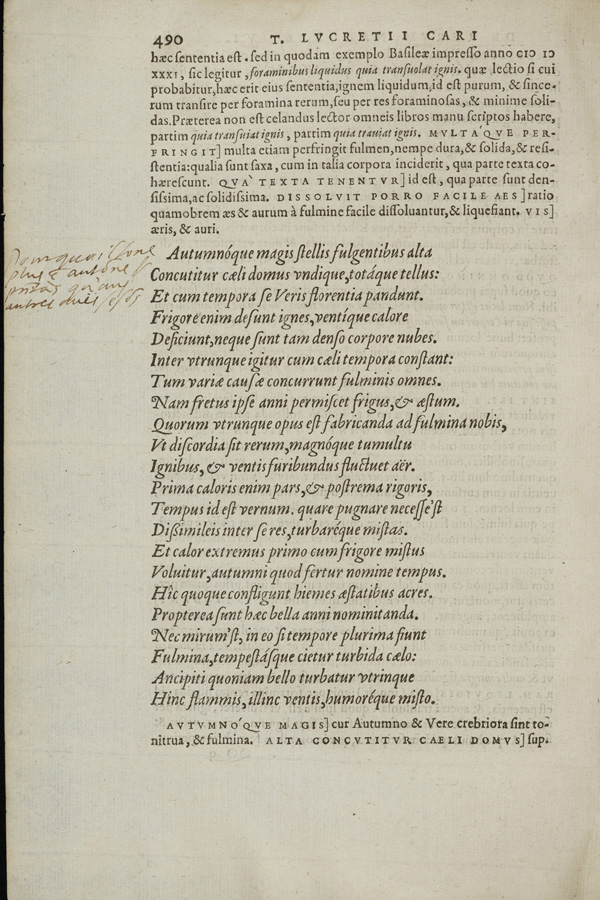 490 T. LVCRETII CARI
hæc sententia est. sed in quodam exemplo Basileæ impresso anno CIↃ IↃ
XXXI, sic legitur, foraminibus liquidus quia transuolat ignis. quæ lectio si cui
probabitur, hæc erit eius sententia, ignem liquidum, id est purum, & since-
rum transire per foramina rerum, seu per res foraminosas, & minime soli-
das. Præterea non est celandus lector omneis libros manu scriptos habere,
partim quia transuiat ignis, partim quia trauiat ignis. MVLTA'QVE PER-
FRINGIT] multa etiam perfringit fulmen, nempe dura, & solida, & resi-
stentia: qualia sunt saxa, cum in talia corpora inciderit, qua parte texta co-
hærescunt. QVA' TEXTA TENENTVR] id est, qua parte sunt den-
sissima, ac solidissima. DISSOLVIT PORRO FACILE AES] ratio
quamobrem æs & aurum à fulmine facile dissoluantur, & liquefiant. VIS]
æris, & auri.
Autumnóque magis stellis fulgentibus alta
Concutitur cæli domus vndique, totáque tellus:
Et cum tempora se Veris florentia pandunt.
Frigore enim desunt ignes, ventíque calore
Deficiunt, neque sunt tam denso corpore nubes.
Inter vtrunque igitur cum cæli tempora constant:
Tum variæ causæ concurrunt fulminis omnes.
Nam fretus ipse anni permiscet frigus, & æstum.
Quorum vtrunque opus est fabricanda ad fulmina nobis,
Vt discordia sit rerum, magnóque tumultu
Ignibus, & ventis furibundus fluctuet aër.
Prima caloris enim pars, & postrema rigoris,
Tempus id est vernum. quare pugnare necesse'st
Dißimileis inter se res, turbaréque mistas.
Et calor extremus primo cum frigore mistus
Voluitur, autumni quod fertur nomine tempus.
Hîc quoque confligunt hiemes æstatibus acres.
Propterea sunt hæc bella anni nominitanda.
Nec mirum'st, in eo si tempore plurima fiunt
Fulmina, tempestásque cietur turbida cælo:
Ancipiti quoniam bello turbatur vtrinque
Hinc flammis, illinc ventis, humoréque misto.
AVTVMNO'QVE MAGIS] cur Autumno & Vere crebriora sint to-
nitrua, & fulmina. ALTA CONCVTITVR CAELI DOMVS] sup.